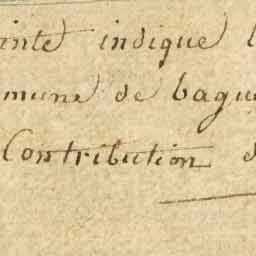 inte indique l
mune de bagu
Contribution d